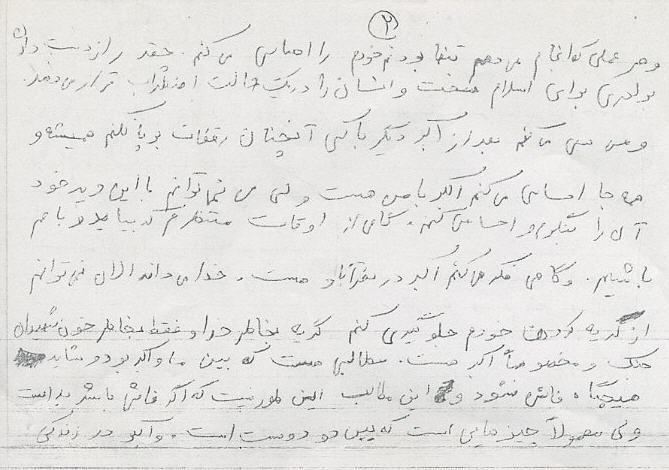 ۲
و هر عملی که انجام می دهم تنها بودنم خودم را احساس می کنم. چقدر از دست دادن
برادری برای اسلام سخت و انسان را در یک حالت اضطراب قرار می دهد.
و من سعی می کنم بعد از اکبر دیگر با کسی آنچنان رفقات برپا نکنم همیشه و
همه جا احساس می کنم اکبر با من هست ولی من نمی توانم با این دید خود
آن را بنگرم و احساس کنم. گاهی از اوقات منتظرم که بیاید و با هم
باشیم. و گاهی فکر می کنم اکبر در هست. خدا می داند الان نمی توانم
از گریه کردن خودم جلوگیری کنم گریه بخاطر خدا و فقط بخاطر خون شهیدان
جنگ و مخصوصاً اکبر هست. مطالبی هست که بین ما و اکبر بود و شاید
هیچگاه فاش نشود و این مطالب این طور نیست که اگر فاش باشد بد است
ولی معمولاً چیزهایی است که بین دو دوست است. و اکبر در زندگی